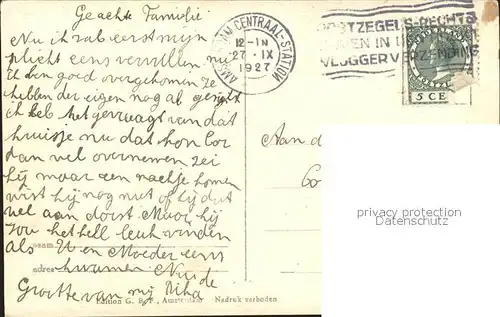 Geachte Familie
Nu ik zal eerst mijn
plicht eens vervullen nu
ik ben goed overgekomen ze
hebben der eigen nog al
ik heb het gevraagt van dat
huisje nu dat kon Cor
dan wel overnemen zei
hij maar een nachje komen
wist hij nog niet of hij dat
wel aan dorst Maar hij
zou het heel leuk vinden
als U en Moeder eens
naam:
adres: kwamen Nu de
Groette van mij Riha
Edition G. B. F., Amsterdam Nadruk verboden
AMSTERDAM CENTRAAL-STATION
12-1N
27·IX
1927
POSTZEGELS RECHTS
BOVEN IN DE HOEK
VLUGGER VERZENDING
NEDERLAND
5 CE
Aan d
privacy protection
Datenschutz